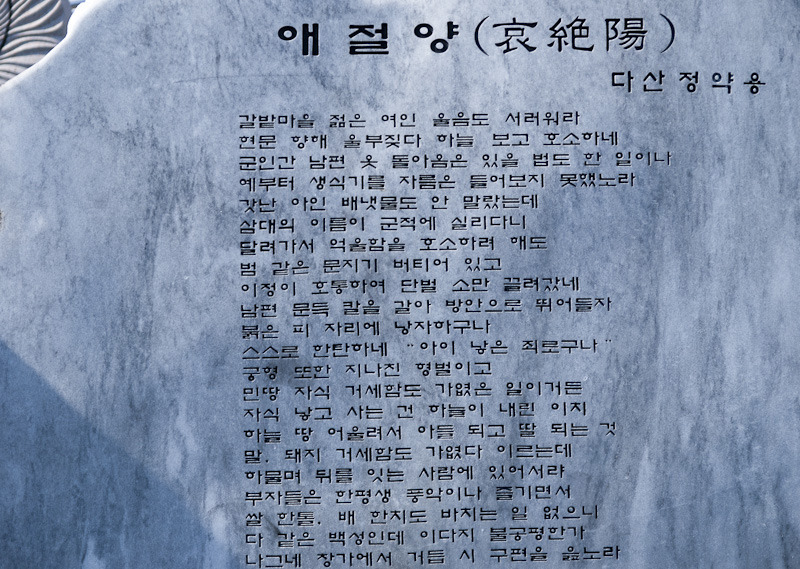 애절양(哀絶陽)
다산정약용
갈밭마을 젊은 여인 울음도 서러워라
현문 향해 울부짖다 하늘 보고 호소하네
군인간 남편 못 돌아옴은 있을 법도 한 일이나
예부터 생식기를 자름은 들어보지 못했노라
갓난 아인 배냇물도 안 말랐는데
삼대의 이름이 군적에 실리다니
달려가서 억울함을 호소하려 해도
범 같은 문지기 버티어 있고
이정이 호통하여 단벌 소만 끌려갔네
남편 문득 칼을 갈아 방안으로 뛰어들자
붉은 피 자리에 낭자하구나
스스로 한탄하네 "아이 낳은 죄로구나"
궁형 또한 지나친 형벌이고
민땅 자식 거세함도 가엾은 일이거든
자식 낳고 사는 건 하늘이 내린 이치
하늘 땅 어울려서 아들 되고 딸 되는 것
말. 돼지 거세함도 가엾다 이르는데
하물며 뒤를 잇는 사람에 있어서랴
부자들은 한평생 풍악이나 즐기면서
쌀 한톨. 베 한치도 바치는 일 없으니
다 같은 백성인데 이다지 불공평한가
나그네 창가에서 거듭 시 구편을 읊노라